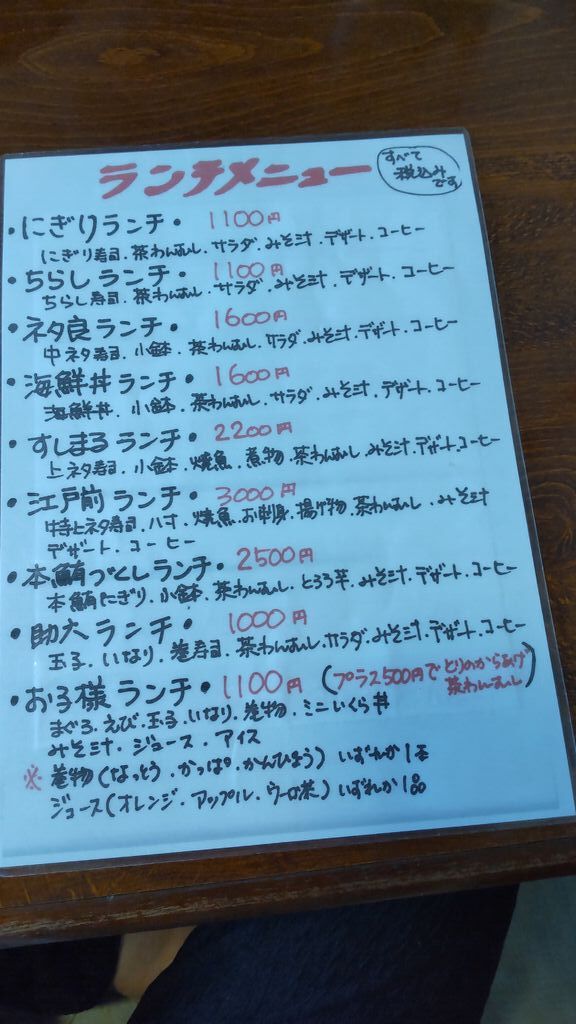 ランチメニュー
すべて
税込み
です
・にぎりランチ・ 1100円
にぎり寿司.茶わんむし.サラダ.みそ汁.デザート.コーヒー
・ちらしランチ・ 1100円
ちらし寿司.茶わんむし.サラダ.みそ汁.デザート.コーヒー
・ネタ良ランチ・ 1600円
中ネタ寿司.小鉢.茶わんむし.サラダ.みそ汁.デザート.コーヒー
・海鮮丼ランチ・ 1600円
海鮮丼.小鉢.茶わんむし.サラダ.みそ汁.デザート.コーヒー
・すしまるランチ・ 2200円
上ネタ寿司.小鉢.焼魚.煮物.茶わんむし.みそ汁.デザート.コーヒー
・江戸前ランチ・ 3000円
特上ネタ寿司.八寸.焼魚.お刺身.揚げ物.茶わんむし.みそ汁
デザート.コーヒー
・本鮪づくしランチ・ 2500円
本鮪にぎり.小鉢.茶わんむし.とろろ芋.みそ汁.デザート.コーヒー
・助六ランチ・ 1000円
玉子.いなり.巻寿司.茶わんむし.サラダ.みそ汁.デザート.コーヒー
・お子様ランチ・ 1100円 (プラス500円でとりのからあげ
茶わんむし)
まぐろ.えび.玉子.いなり.巻物.ミニいくら丼
みそ汁.ジュース.アイス
※ 巻物(なっとう.かっぱ.かんぴょう)いずれか1本
ジュース(オレンジ.アップル.ウーロン茶)いずれか1品